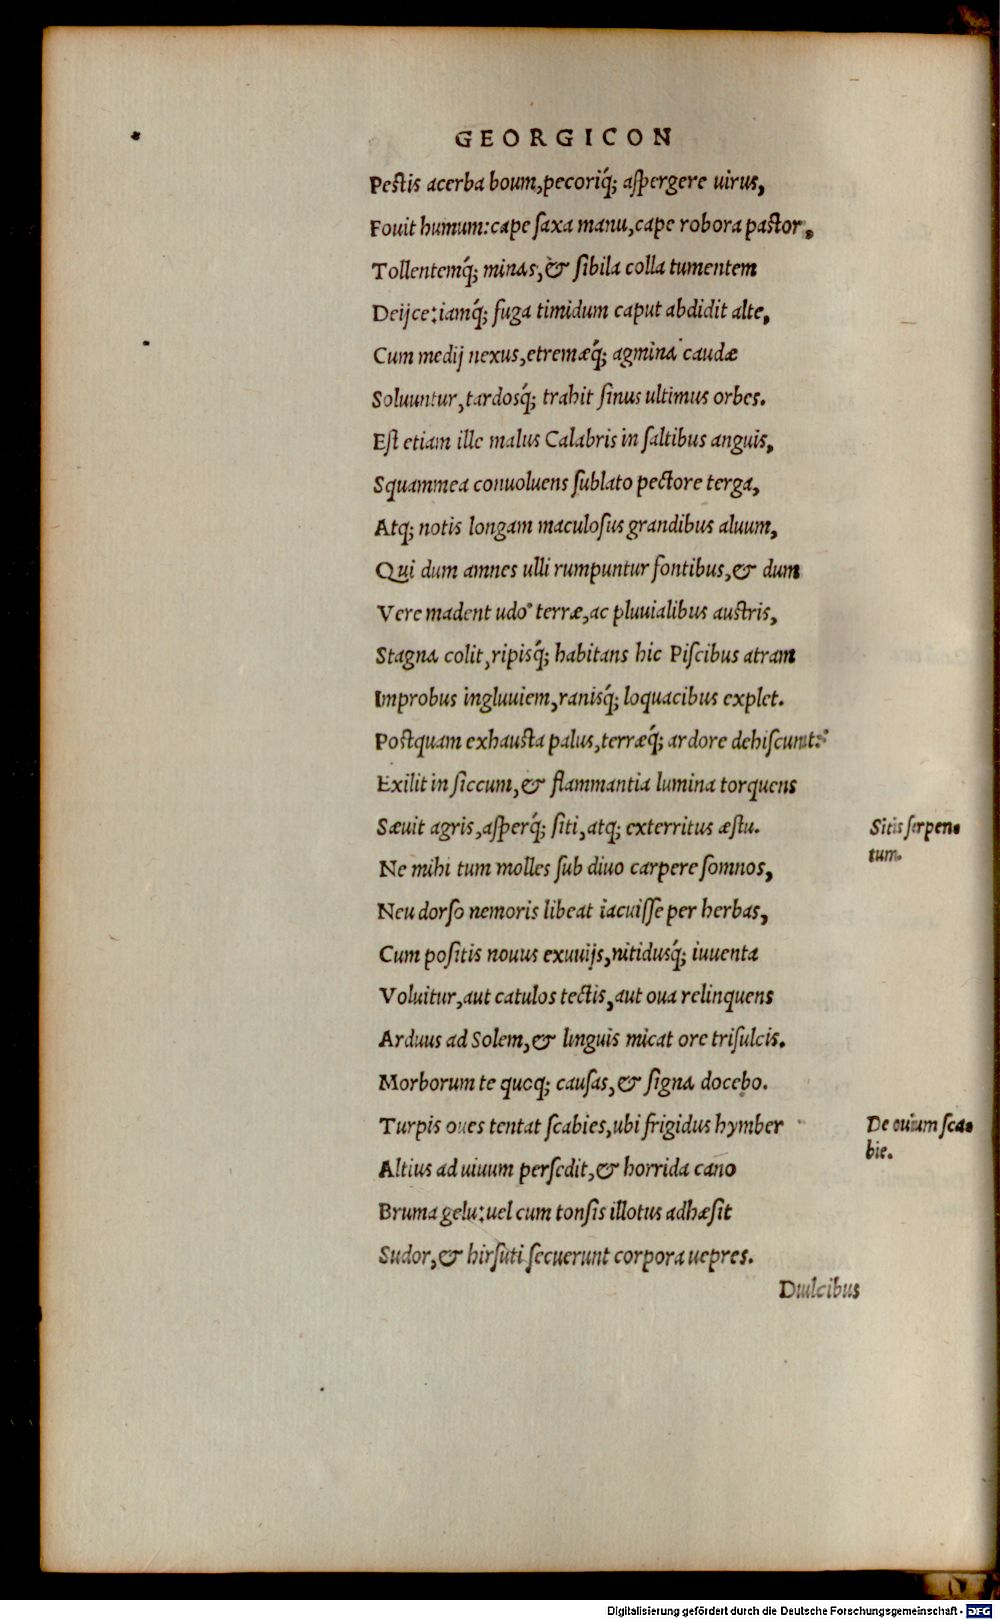 GEORGICON
Pestis acerba boum, pecoriq́; aſpergere uirus,
Fouit humum: cape ſaxa manu, cape robora pastor,
Tollentemq́; minas, & ſibila colla tumentem
Deijce: iamq́; fuga timidum caput abdidit alte,
Cum medij nexus, etremæq́; agmina caudæ
Soluuntur, tardosq́; trahit ſinus ultimus orbes.
Eſt etiam ille malus Calabris in ſaltibus anguis,
Squammea conuoluens ſublato pectore terga,
Atq; notis longam maculoſus grandibus aluum,
Qui dum amnes ulli rumpuntur fontibus, & dum
Vere madent udo terræ, ac pluuialibus austris,
Stagna colit, ripisq́; habitans hic Piſcibus atram
Improbus ingluuiem, ranisq́; loquacibus explet.
Postquam exhausta palus, terræq́; ardore dehiſcunt:
Exilit in ſiccum, & flammantia lumina torquens
Sæuit agris, aſperq́; ſiti, atq; exterritus æſtu.
Sitis ſerpen
tum.
Ne mihi tum molles ſub diuo carpere ſomnos,
Neu dorſo nemoris libeat iacuiſſe per herbas,
Cum poſitis nouus exuuijs, nitidusq́; iuuenta
Voluitur, aut catulos tectis, aut oua relinquens
Arduus ad Solem, & linguis micat ore triſulcis.
Morborum te quoq; cauſas, & ſigna docebo.
Turpis oues tentat ſcabies, ubi frigidus hymber
De ouium ſca
bie.
Altius ad uiuum perſedit, & horrida cano
Bruma gelu: uel cum tonſis illotus adhæſit
Sudor, & hirſuti ſecuerunt corpora uepres.
Duulcibus
Digitalisierung gefördert durch die Deutsche Forschungsgemeinschaft - DFG